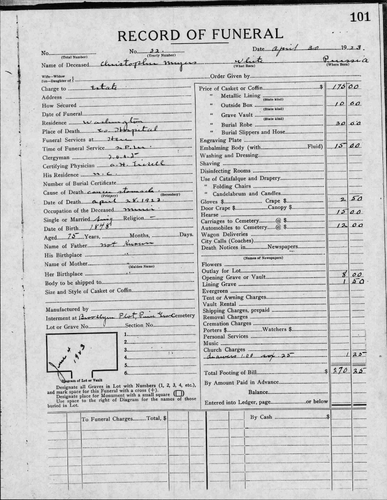 101
RECORD OF FUNERAL
No. (Total Number) No. 22 (Yearly Number) Date April 30 1923
Name of Deceased Christopher Myers White (What Race) Russia (Where Born)
Wife-Widow Son-Daughter of
Order Given by
Charge to Estate
Address
How Secured
Date of Funeral
Residence Washington
Place of Death Co Hospital
Funeral Services at
Time of Funeral Service
Clergyman
Certifying Physician
His Residence N.C.
Number of Burial Certificate
Cause of Death Cancer stomach
(Primary) (Secondary)
Date of Death April 28, 1923
Occupation of the Deceased Miner
Single or Married Sing Religion -
Date of Birth 1848
Aged 75 Years, Months, Days.
Name of Father Not Known
His Birthplace "
Name of Mother "
(Maiden Name)
Her Birthplace "
Body to be shipped to
Size and Style of Casket or Coffin
Manufactured by
Interment at Brooklyn Plot, Pine Cemetery
Lot or Grave No. Section No.
1.
2.
3.
4.
5.
6.
Diagram of Lot or Vault
Designate all Graves in Lot with Numbers (1, 2, 3, 4, etc.),
and mark space for this Funeral with a cross (+).
Designate place for Monument with a small square
Use space to the right of Diagram for the names of those
buried in Lot.
Price of Casket or Coffin $ 175 00
" Metallic Lining
(State kind)
" Outside Box 10 00
(State kind)
" Grave Vault
(State kind)
" Burial Robe 30 00
(State kind)
" Burial Slippers and Hose
Engraving Plate
Embalming Body (with Fluid) 15 00
Washing and Dressing
Shaving
Disinfecting Rooms
Use of Catafalque and Drapery
" Folding Chairs
" Candelabrum and Candles
Gloves $ Crape $ 2 50
Door Crape $ Canopy $
Hearse 15 00
Carriages to Cemetery @ $
Automobiles to Cemetery @ $ 12 00
Wagon Deliveries
City Calls (Coaches)
Death Notices in Newspapers
(Names of Newspapers)
Flowers
Outlay for Lot
Opening Grave or Vault 8 00
Lining Grave 1 50
Evergreen
Tent or Awning Charges
Vault Rental
Shipping Charges, prepaid
Removal Charges
Cremation Charges
Porters $ Watchers $
Personal Services
Music
Church Charges
1.00 25 1 25
Total Footing of Bill $ 270 25
By Amount Paid in Advance
Balance
Entered into Ledger, page or below.
To Funeral Charges, Total, $ By Cash $